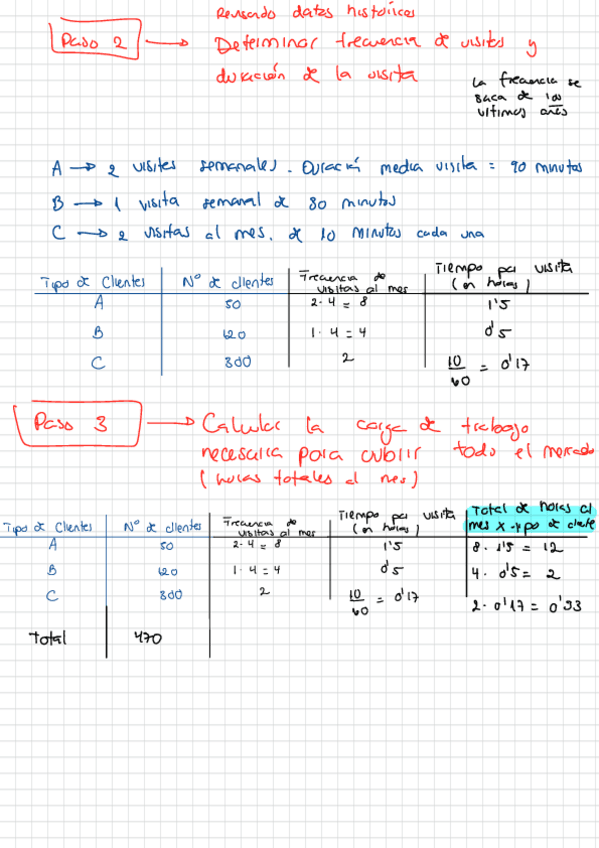 Revisando datos históricos
Paso 2 → Determinar frecuencia de visitas y
duración de la visita
La frecuencia se
saca de los
últimos años
A → 2 visitas semanales. Duración media visita = 90 minutos
B → 1 visita semanal de 30 minutos
C → 2 visitas al mes. de 10 minutos cada una
Tipo de Clientes Nº de clientes Frecuencia de visitas al mes Tiempo por visita (en horas)
A 50 2·4 = 8 1'5
B 120 1·4 = 4 0'5
C 300 2 10/60 = 0'17
Paso 3 → Calcular la carga de trabajo
necesaria para cubrir todo el mercado
(horas totales al mes)
Tipo de Clientes Nº de clientes Frecuencia de visitas al mes Tiempo por visita (en horas) Total de horas al mes x tipo de cliente
A 50 2·4 = 8 1'5 8·1'5 = 12
B 120 1·4 = 4 0'5 4·0'5 = 2
C 300 2 10/60 = 0'17 2·0'17 = 0'33
Total 470